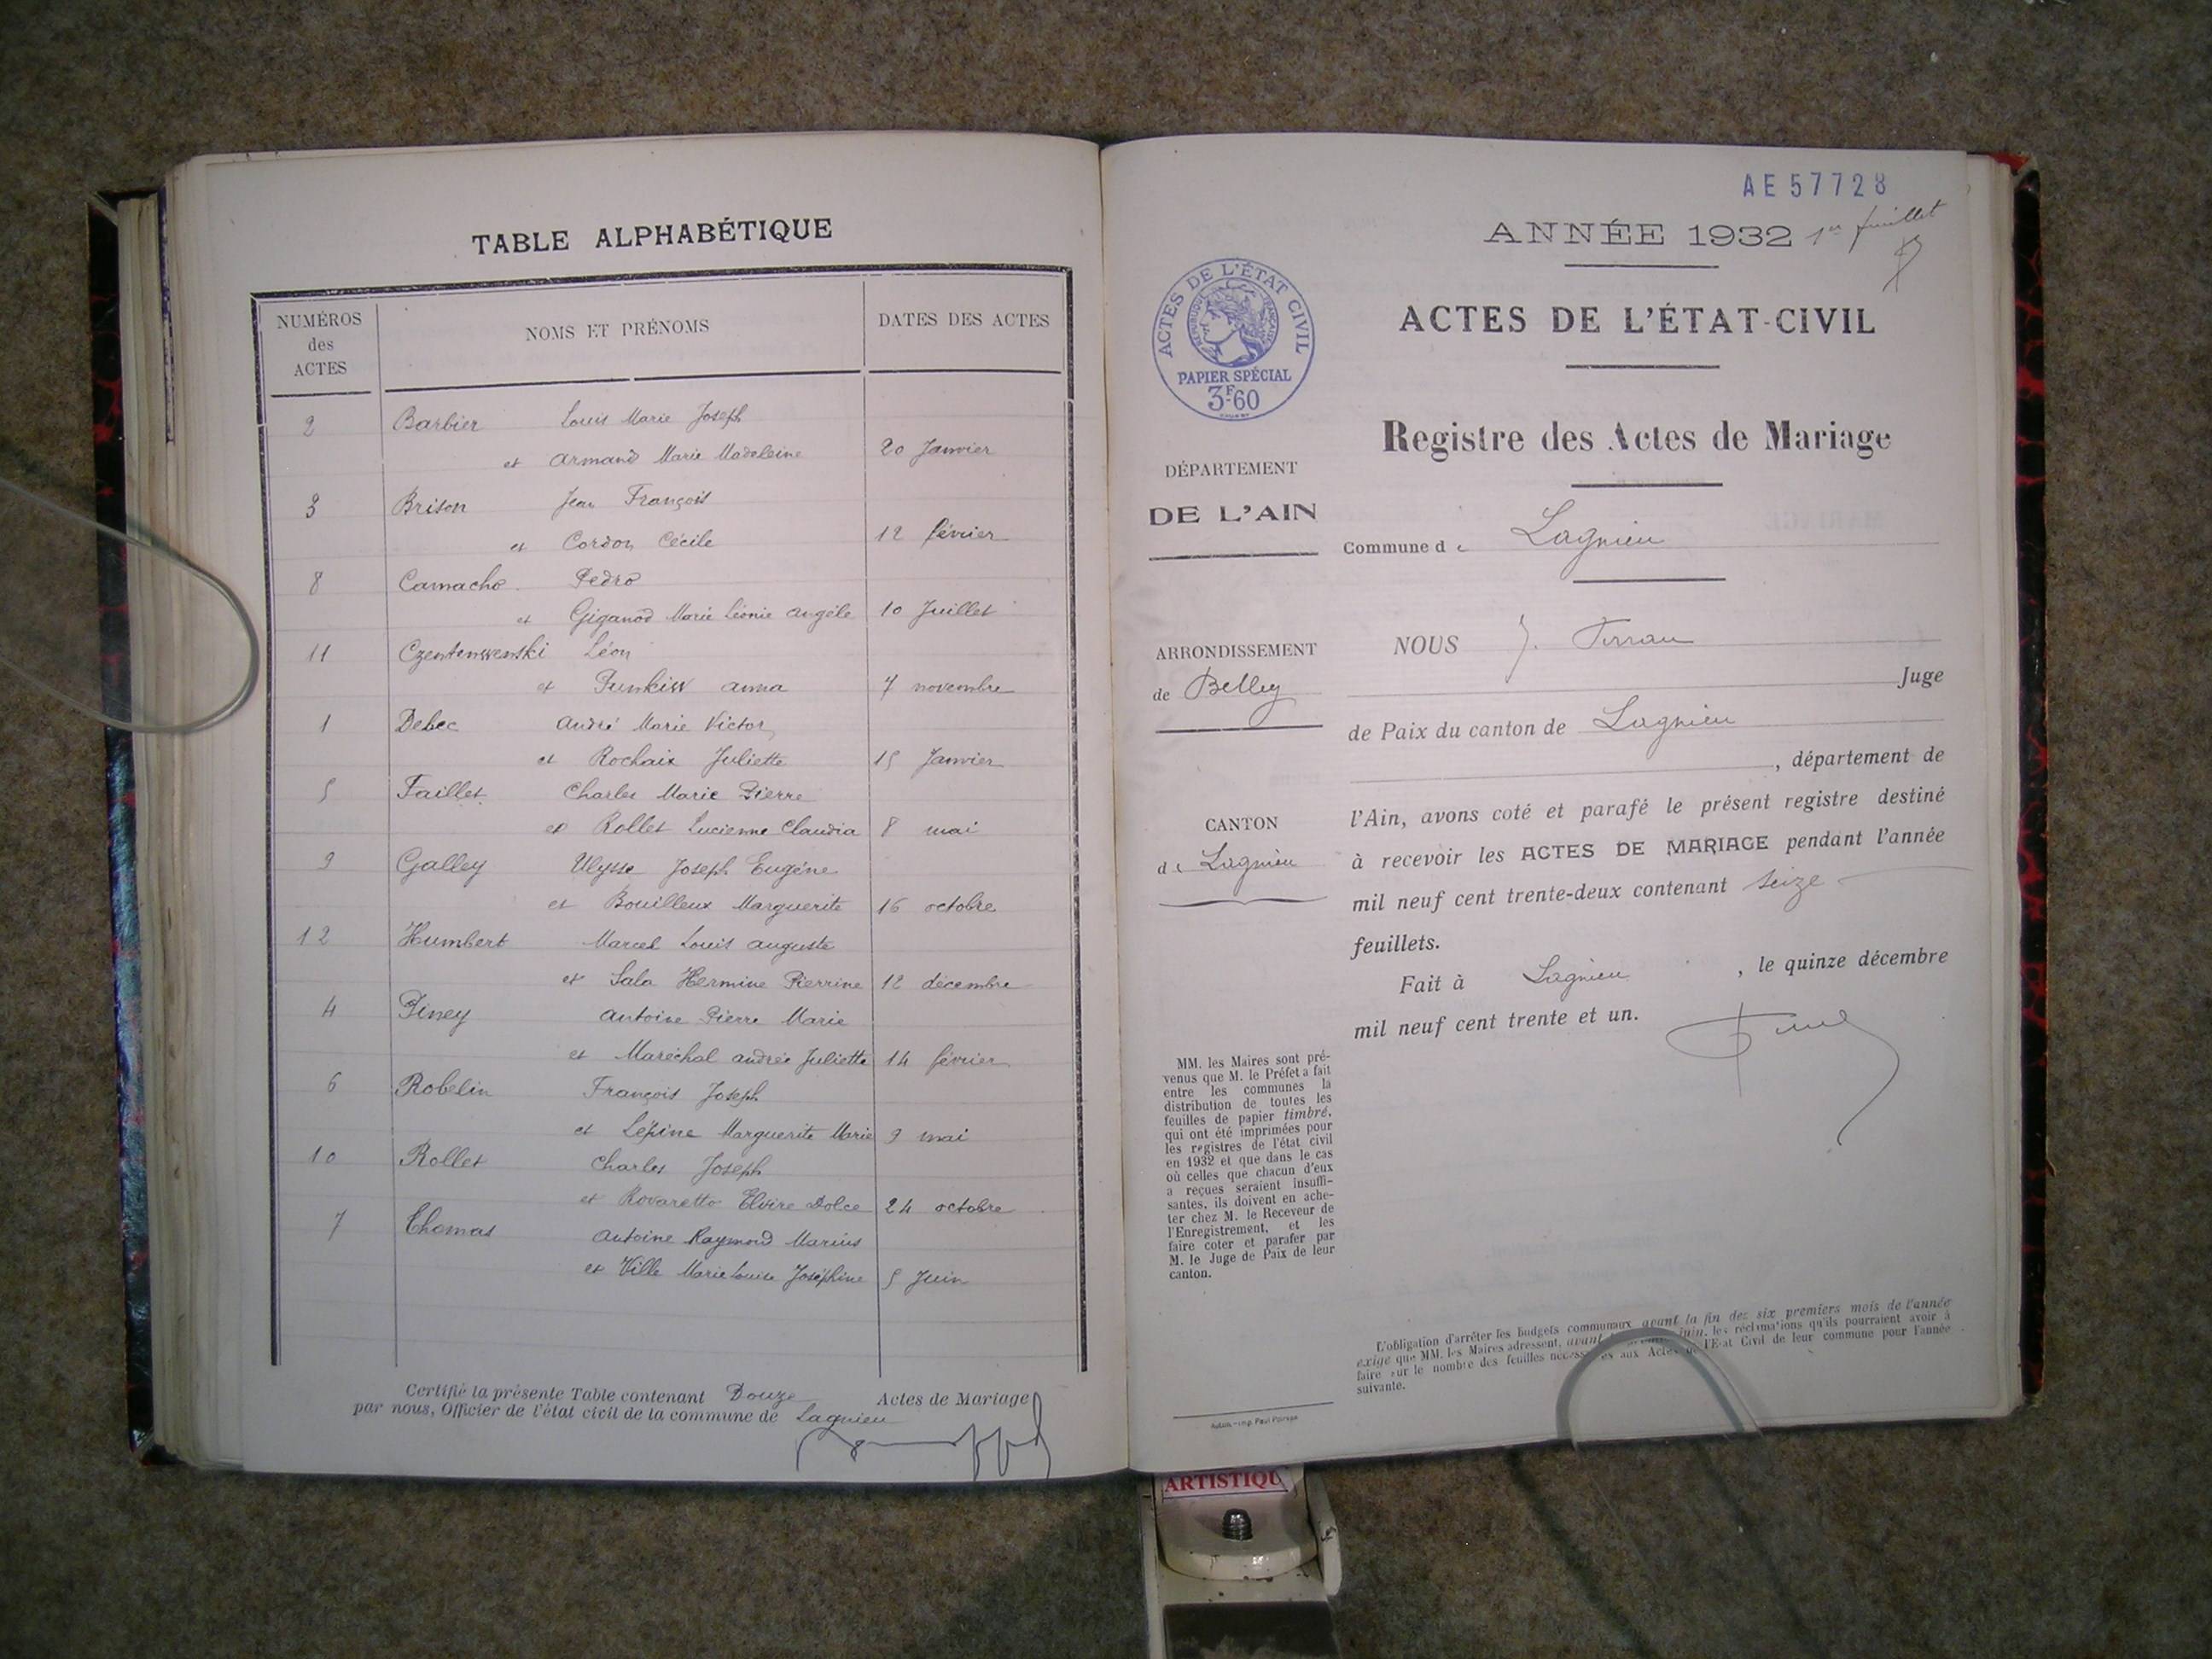 TABLE ALPHABÉTIQUE
NUMÉROS des ACTES NOMS ET PRÉNOMS DATES DES ACTES
2 Barbier Louis Marie Joseph
et Armand Marie Madeleine 20 Janvier
3 Brison Jean François
et Cordon Cécile 12 février
8 Camacho Pedro
et Giganod Marie Léonie Angèle 10 Juillet
11 Léon
et Anna 7 novembre
1 Debec André Marie Victor
et Rochaix Juliette 15 Janvier
5 Faillet Charles Marie Pierre
et Rollet Lucienne Claudia 8 mai
9 Galley Ulysse Joseph Eugène
et Bouilleux Marguerite 16 octobre
12 Humbert Marcel Louis Auguste
et Sala Hermine Pierrine 12 décembre
4 Piney Antoine Pierre Marie
et Maréchal Andrée Juliette 14 février
6 Robelin François Joseph
et Lépine Marguerite Marie 9 mai
10 Rollet Charles Joseph
et Rovaretto Elvire Dolce 24 octobre
7 Thomas Antoine Raymond Marius
et Ville Marie Louise Joséphine 5 Juin
Certifié la présente Table contenant Douze Actes de Mariage
par nous, Officier de l'état civil de la commune de Lagnieu
AE57728
ANNÉE 1932 1er feuillet
ACTES DE L'ÉTAT CIVIL
REPUBLIQUE FRANÇAISE
PAPIER SPÉCIAL
3F.60
ACTES DE L'ÉTAT-CIVIL
Registre des Actes de Mariage
DÉPARTEMENT
DE L'AIN
Commune de Lagnieu
ARRONDISSEMENT
de Belley
CANTON
de Lagnieu
NOUS J.
Juge
de Paix du canton de Lagnieu
, département de
l'Ain, avons coté et parafé le présent registre destiné
à recevoir les ACTES DE MARIAGE pendant l'année
mil neuf cent trente-deux contenant seize
feuillets.
Fait à Lagnieu, le quinze décembre
mil neuf cent trente et un.
MM. les Maires sont pré-
venus que M. le Préfet a fait
entre les communes la
distribution de toutes les
feuilles de papier timbré,
qui ont été imprimées pour
les registres de l'état civil
en 1932 et que dans le cas
où celles que chacun d'eux
a reçues seraient insuffi-
santes, ils doivent en ache-
ter chez M. le Receveur de
l'Enregistrement, et les
faire coter et parafer par
M. le Juge de Paix de leur
canton.
L'obligation d'arrêter les budgets communaux avant la fin des six premiers mois de l'année
exige que MM. les Maires adressent, avant juin, les réclamations qu'ils pourraient avoir à
faire sur le nombre des feuilles nécessaires aux Actes de l'Etat Civil de leur commune pour l'année
suivante.
ARTISTIQU